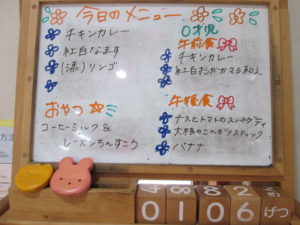 今日のメニュー
チキンカレー
紅白なます
(流)リンゴ
おやつ
コーヒーミルク&
レーズンちんすこう
0才児
午前食
チキンカレー
紅白おかかマヨ和え
午後食
ナスとトマトのスパゲティ
大根のこんがりスティック
バナナ
0106
げつ
方法